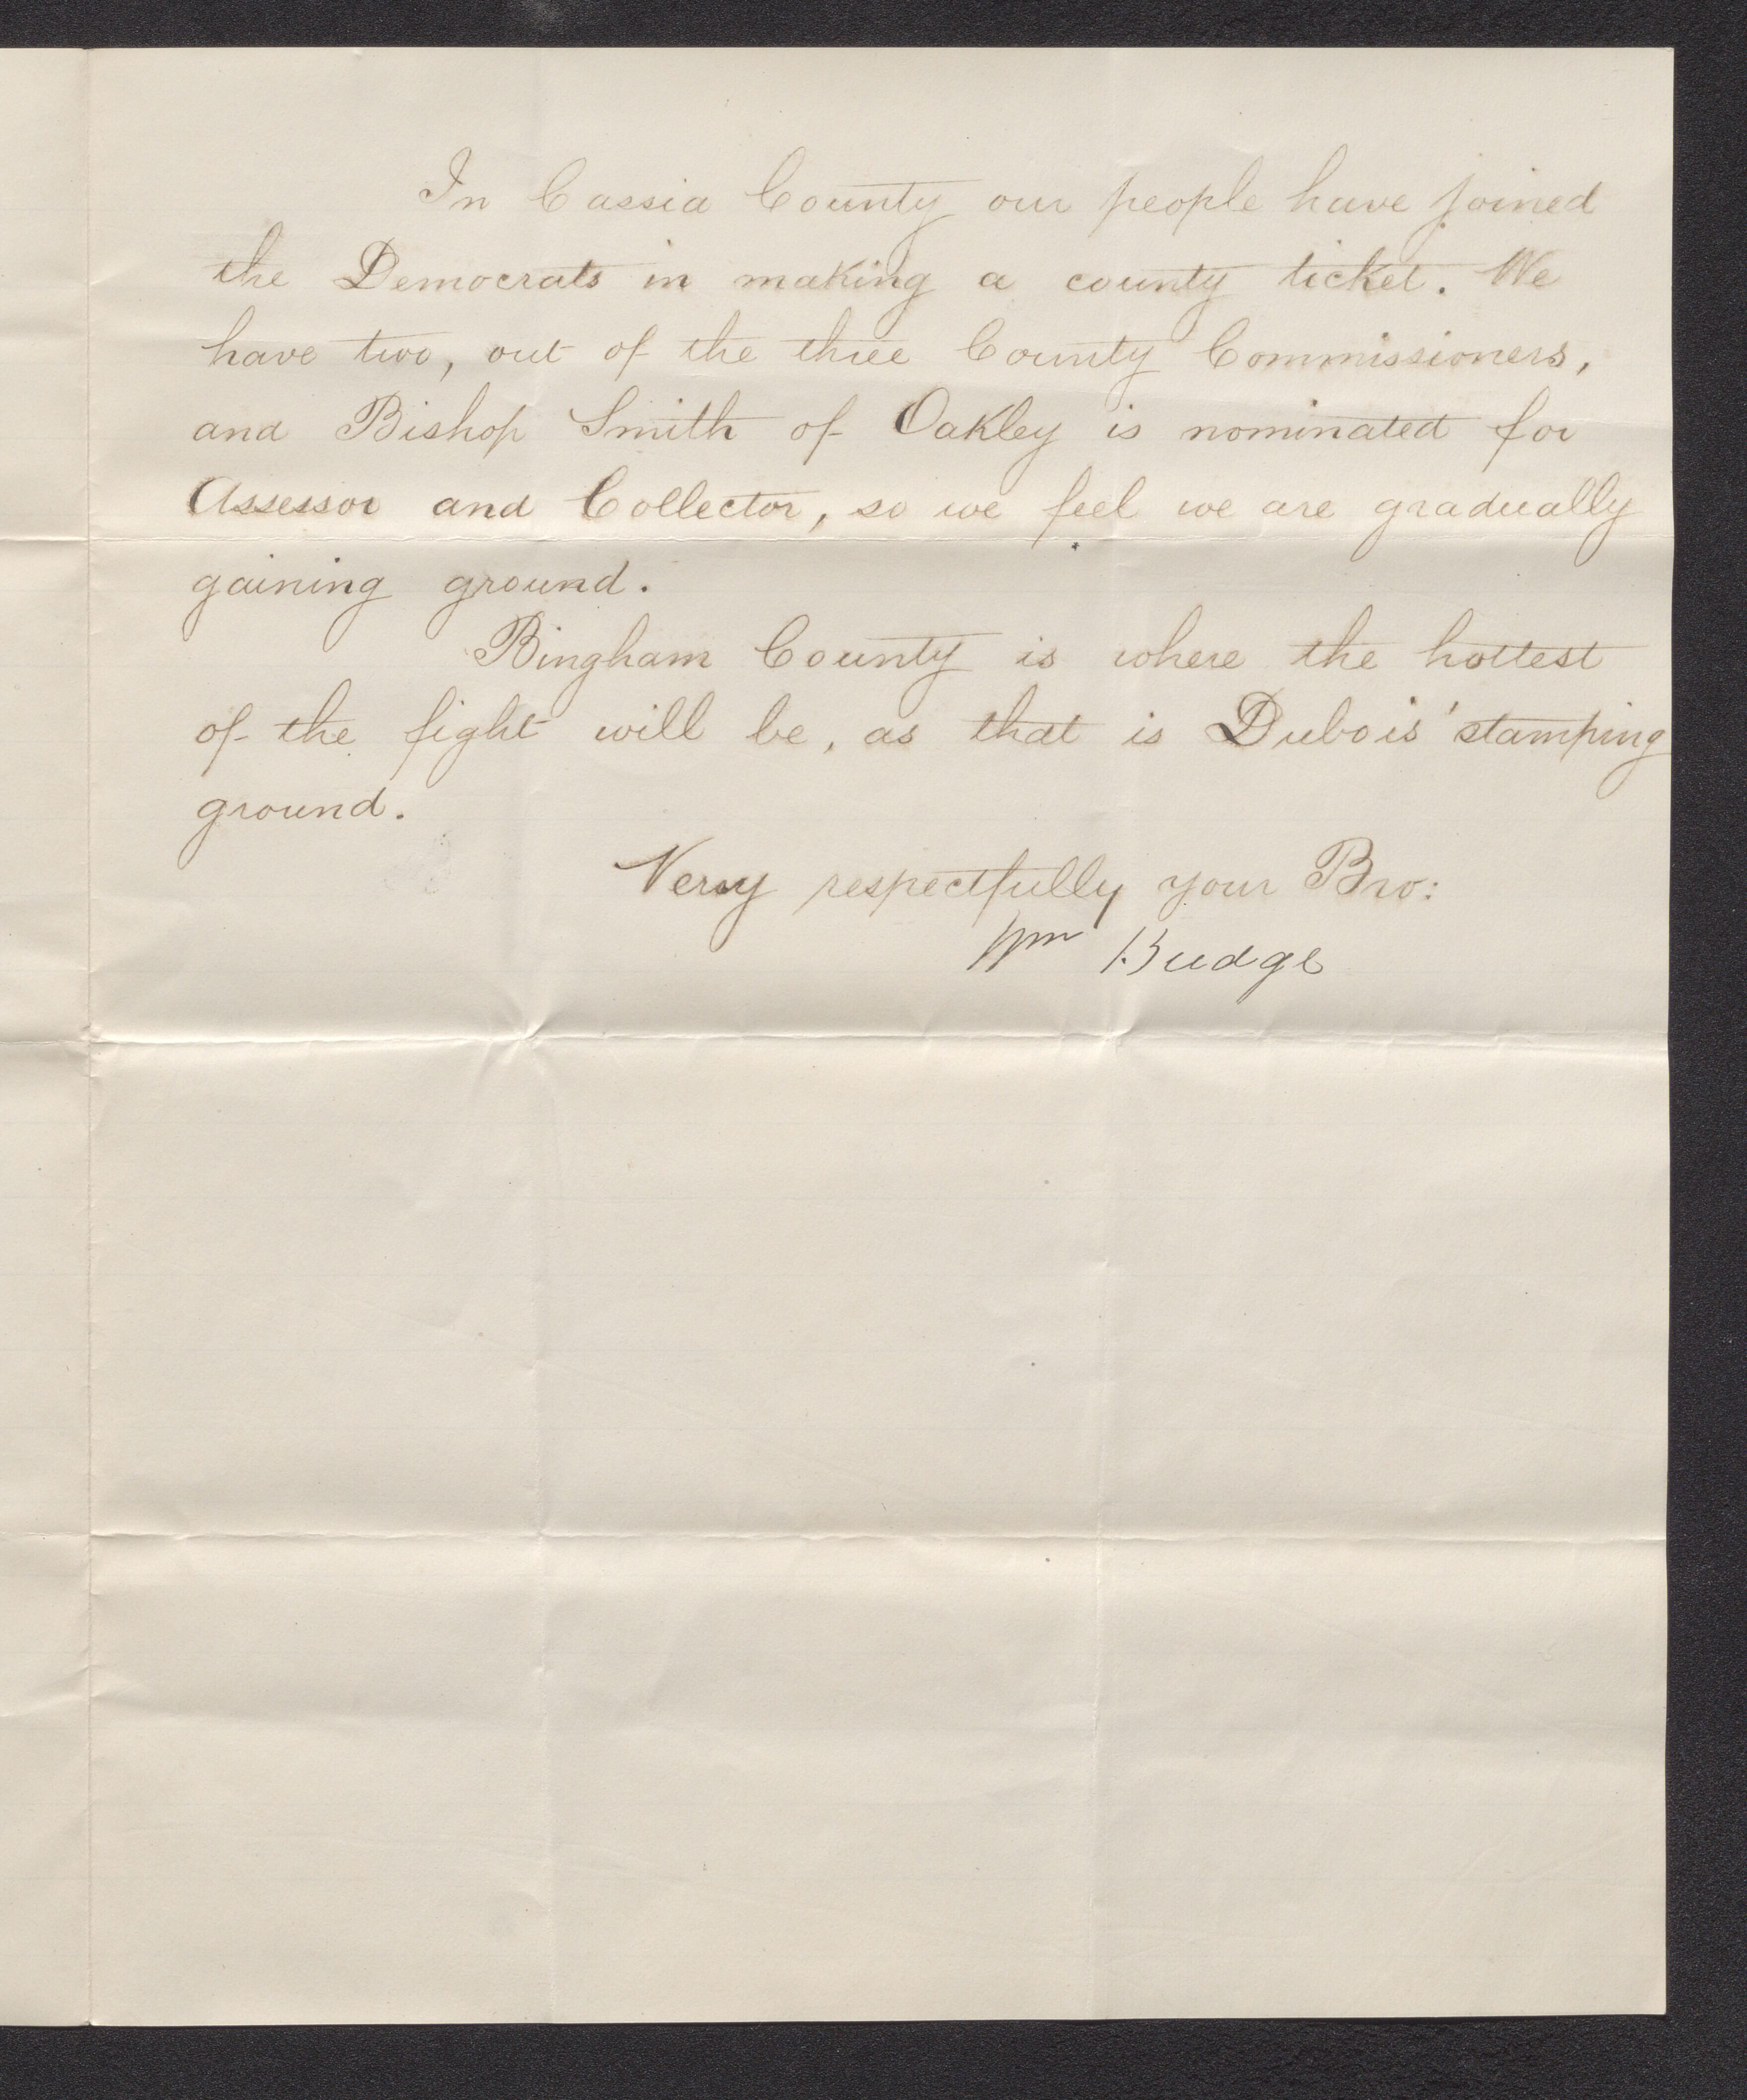 In Cassia County our people have joined
the Democrats in making a county ticket. We
have two, out of the three County Commissioners,
and Bishop Smith of Oakley is nominated for
Assessor and Collector, so we feel we are gradually
gaining ground.
Bingham County is where the hottest
of the fight will be, as that is Dubois' stamping
ground.
Very respectfully your Bro:
Wm Budge